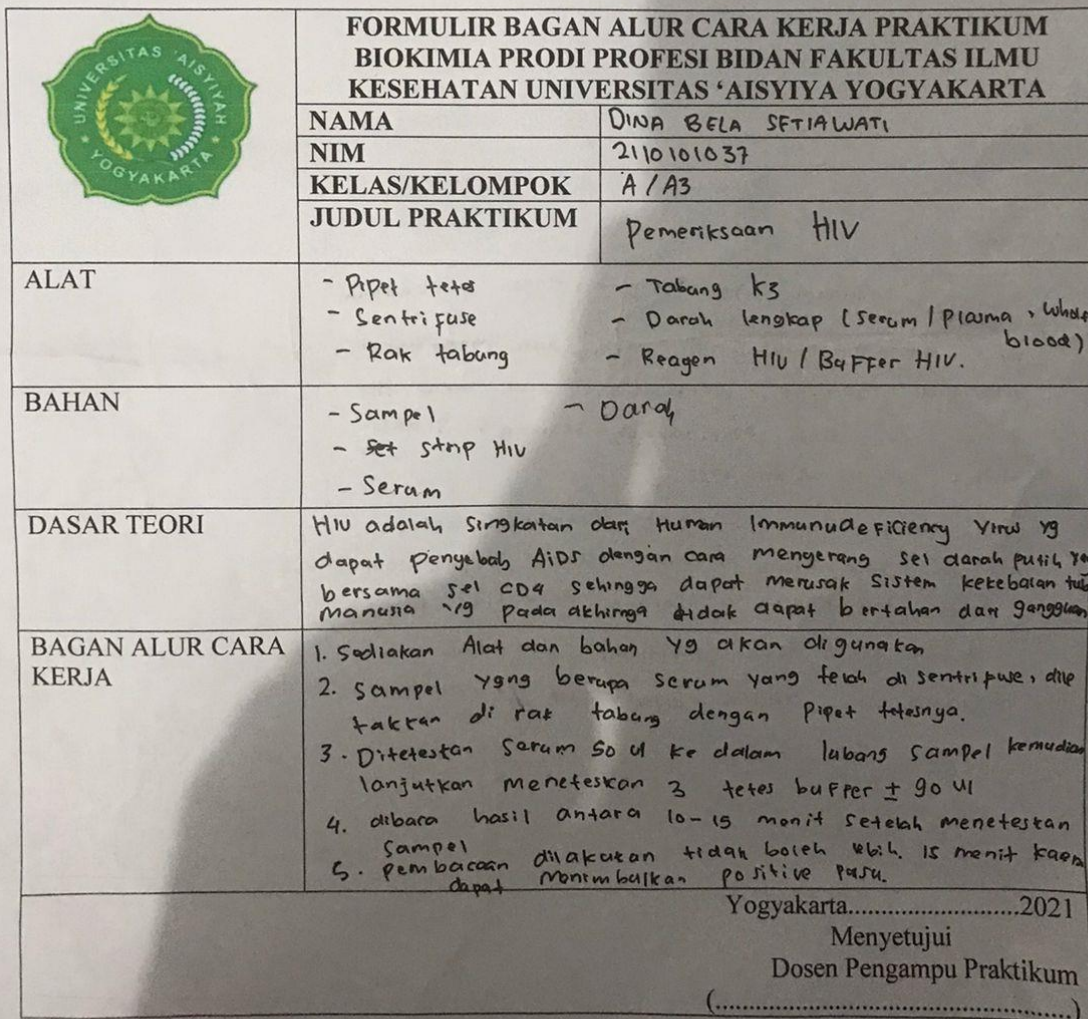 UNIVERSITAS 'AISYIYAH
YOGYAKARTA
FORMULIR BAGAN ALUR CARA KERJA PRAKTIKUM
BIOKIMIA PRODI PROFESI BIDAN FAKULTAS ILMU
KESEHATAN UNIVERSITAS 'AISYIYA YOGYAKARTA
NAMA DINA BELA SETIAWATI
NIM 2110101037
KELAS/KELOMPOK A / A3
JUDUL PRAKTIKUM Pemeriksaan HIV
ALAT
- Pipet tetes - Tabung K3
- Sentrifuse - Darah lengkap (serum / plasma, whole
blood)
- Rak tabung - Reagen HIV / Buffer HIV.
BAHAN
- Sampel - Darah
- Set strip HIV
- Serum
DASAR TEORI
HIV adalah Singkatan dari Human Immunudeficiency Virus yg
dapat penyebab AIDS dengan cara menyerang sel darah putih
bersama sel CD4 sehingga dapat merusak Sistem kekebalan
Manusia yg pada akhirnya tidak dapat bertahan dari gangguan
BAGAN ALUR CARA
KERJA
1. Sediakan Alat dan bahan yg akan digunakan
2. Sampel yang berupa serum yang telah di sentripuse, dile
takkan di rak tabung dengan Pipet tetesnya.
3. Diteteskan Serum 50 ul ke dalam lubang sampel kemudian
lanjutkan meneteskan 3 tetes buffer ± 90 ul
4. dibaca hasil antara 10-15 menit setelah meneteskan
Sampel
5. pembacaan dilakukan tidak boleh lebih. 15 menit
dapat menimbulkan positive pasu.
Yogyakarta..........................2021
Menyetujui
Dosen Pengampu Praktikum
(......................................................)